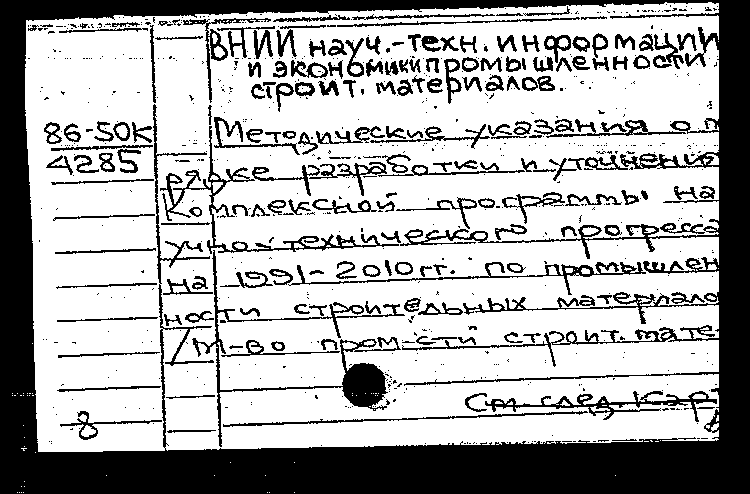 ВНИИ науч.-техн. информации
и экономики промышленности
строит. материалов.
86-50К
4285
Методические указания о п
рядке разработки и уточнения
Комплексной программы на
учно-технического прогресса
на 1991-2010 гг. по промышлен
ности строительных материало
/М-во пром-сти строит. мате-
См. след. карт
8